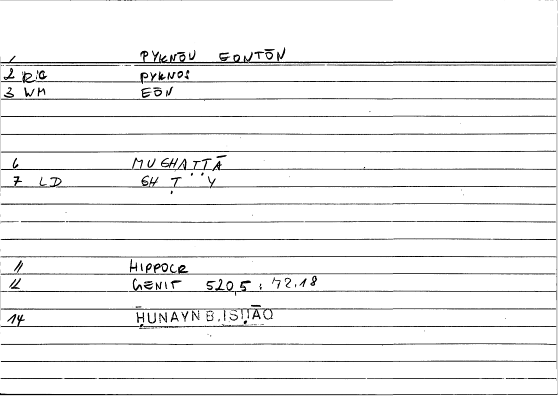 1 PYKNŌU EONTŌN
2 RIG PYKNOS
3 WM EŌN
6 MUSHAṬṬĀ
7 LD SH Ṭ Y
11 HIPPOCR
12 GENIT 520,5 : 72.18
14 ḤUNAYN B.ISḤĀQ